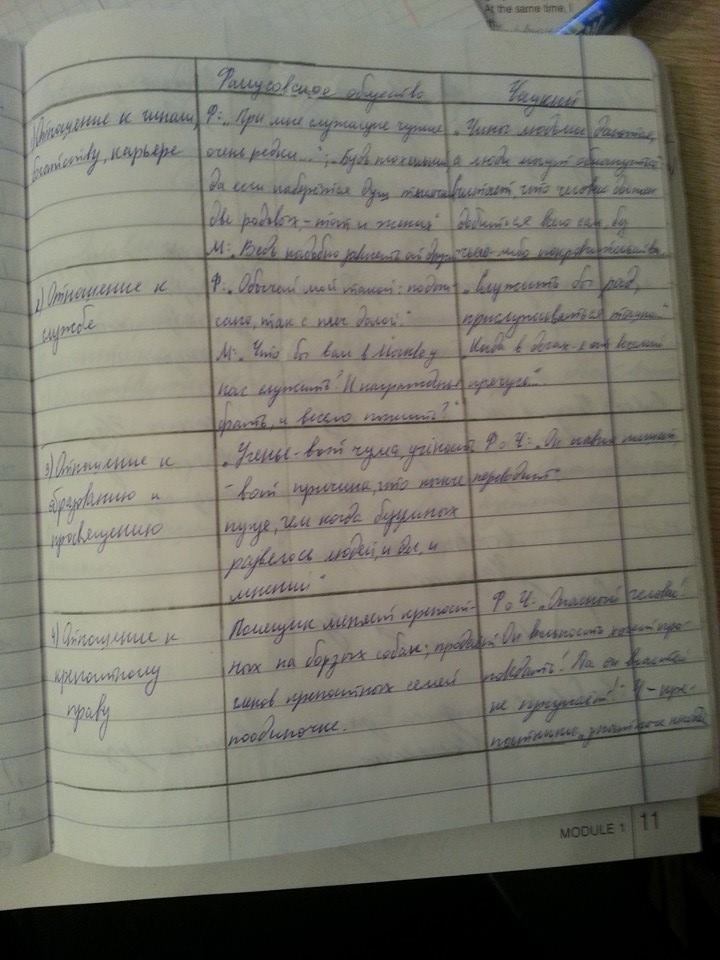 At the same time, I
Фамусовское общество
Чацкий
1) Отношение к чинам,
богатству, карьере
Ф: „При мне служащие чужие
очень редки...“; „Будь плохенький,
да если наберётся душ тысячки
две родовых, – тот и жених“
М: „Ведь надобно зависеть от других“
„Чины людьми даются,
а люди могут обмануться“
считает, что человек должен
добиться всего сам, без
чьего-либо покровительства.
2) Отношение к
службе
Ф: „Обычай мой такой: подпи-
сано, так с плеч долой.“
М: „Что бы вам в Москве у
нас служить? И награжденья
брать, и весело пожить?“
„Служить бы рад,
прислуживаться тошно“
„Когда в делах – я от веселий
прячусь...“
3) Отношение к
образованию и
просвещению
„Ученье – вот чума, учёность
– вот причина, что нынче
пуще, чем когда безумных
развелось людей, и дел, и
мнений“
Ф о Ч: „Он славно пишет
переводит“.
4) Отношение к
крепостному
праву
Помещик меняет крепост-
ных на борзых собак; продаёт
членов крепостных семей
поодиночке.
Ф о Ч: „Опасный человек!
Он вольность хочет про-
поведать! Да он властей
не признаёт!“ Ч –
MODULE 1 11